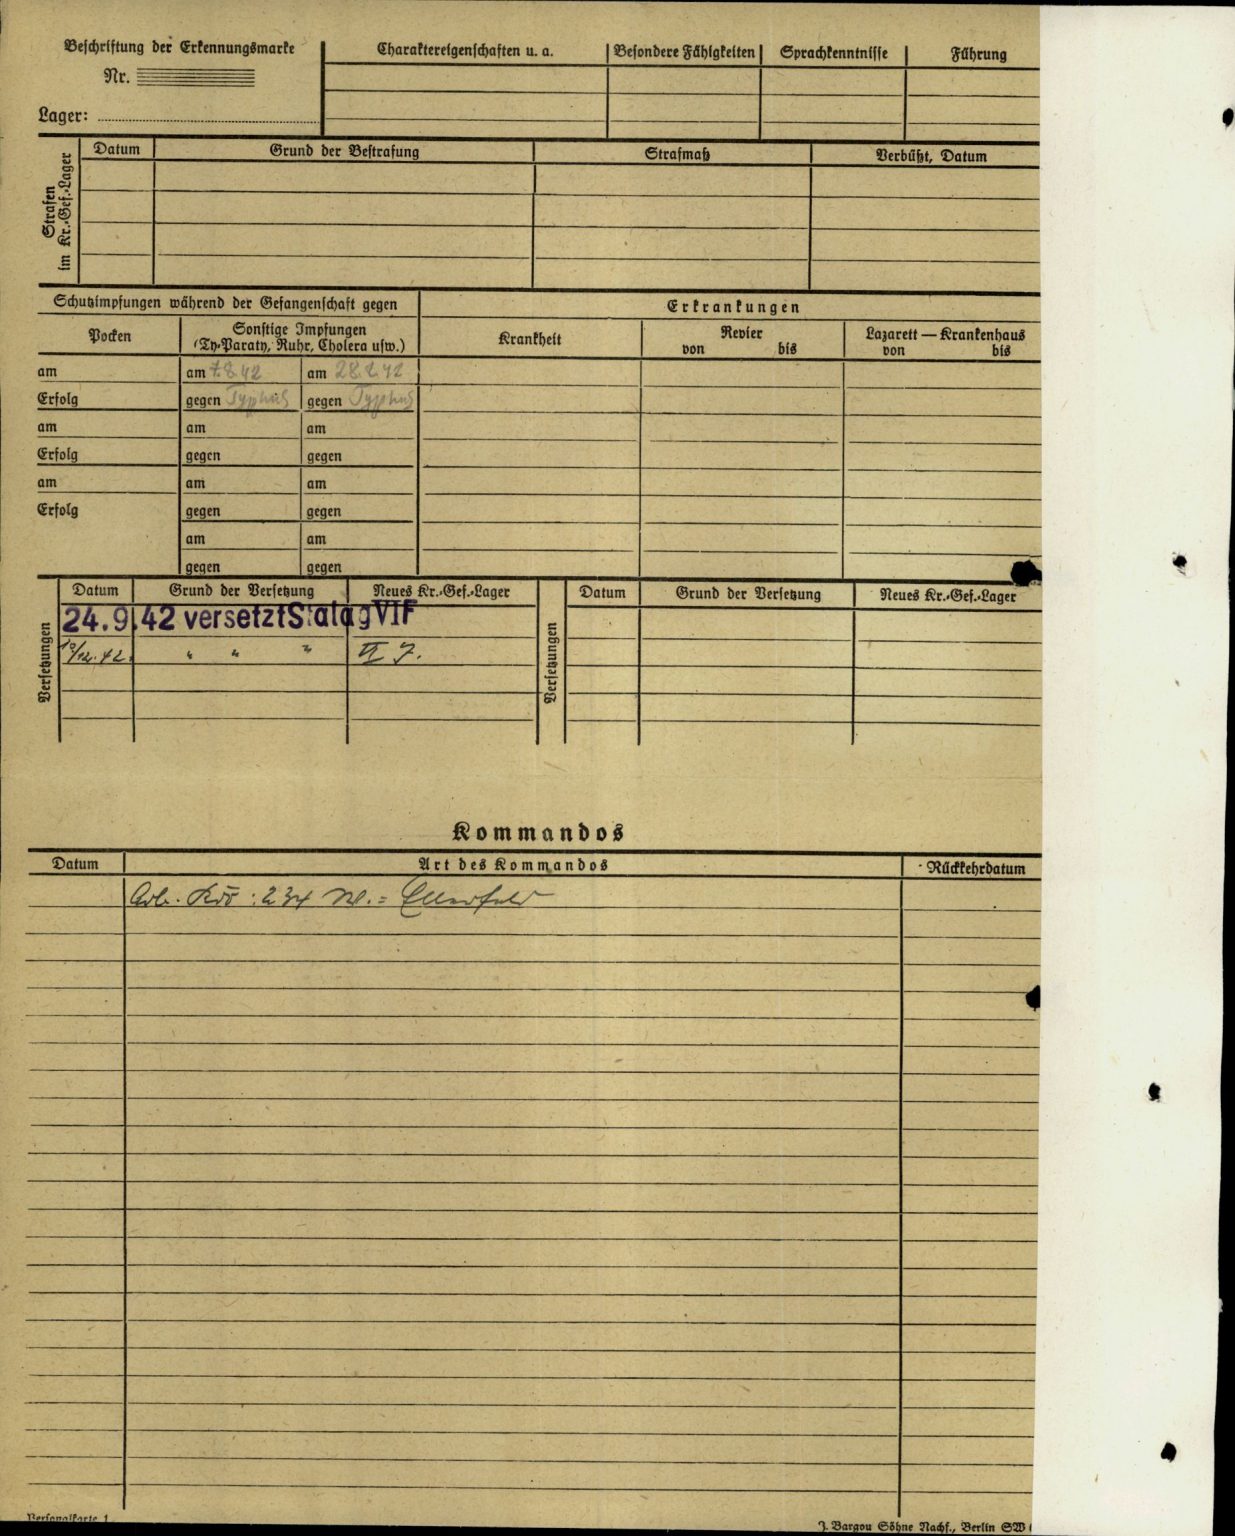 Beschriftung der Erkennungsmarke
Nr.
Lager:
Charaktereigenschaften u. a.
Besondere Fähigkeiten
Sprachkenntnisse
Führung
Strafen
im Kr.-Gef.-Lager
Datum
Grund der Bestrafung
Strafmaß
Verbüßt, Datum
Schutzimpfungen während der Gefangenschaft gegen
Pocken
Sonstige Impfungen
(Ty-Paraty, Ruhr, Cholera usw.)
Erkrankungen
Krankheit
Revier
von bis
Lazarett — Krankenhaus
von bis
am am 7.8.42 am 28.2.42
Erfolg gegen Typhus gegen Typhus
am am am
Erfolg gegen gegen
am am am
Erfolg gegen gegen
am am
gegen gegen
Versetzungen
Datum Grund der Versetzung Neues Kr.-Gef.-Lager
24.9.42 versetzt Stalag VIF
12.42. " " " VI J.
Versetzungen
Datum Grund der Versetzung Neues Kr.-Gef.-Lager
Kommandos
Datum Art des Kommandos Rückkehrdatum
Arb. Kdo: 234 W.= Elberfeld
Personalkarte 1
J. Bargou Söhne Nachf., Berlin SW